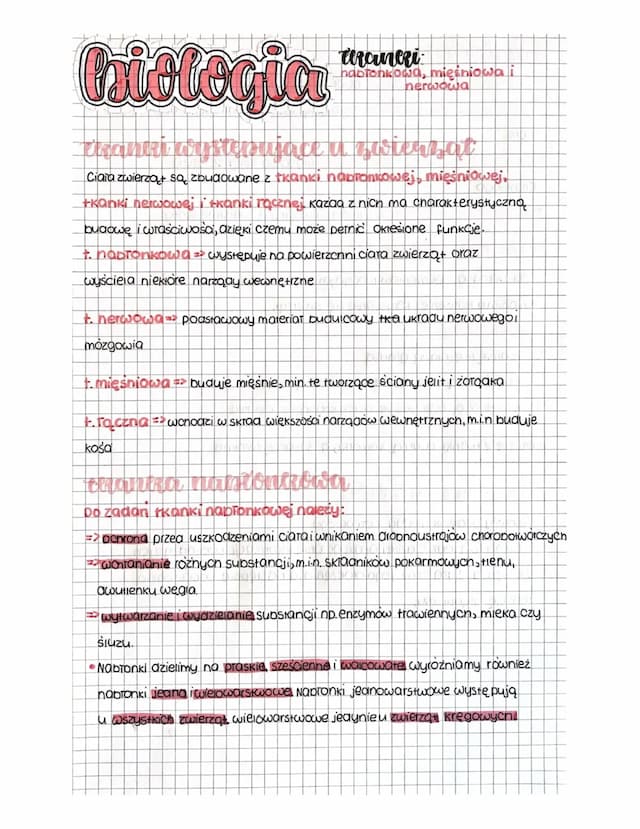 biologia
tkanki:
nabłonkowa, mięśniowa i
nerwowa
tkanki występujące u zwierząt
Ciała zwierząt są zbudowane z tkanki nabłonkowej, mięśniowej,
tkanki nerwowej i tkanki łącznej każda z nich ma charakterystyczną
budowę i właściwości, dzięki czemu może pełnić określone funkcje.
t. nabłonkowa => występuje na powierzchni ciała zwierząt oraz
wyściela niektóre narządy wewnętrzne
t. nerwowa => podstawowy materiał budulcowy tka układu nerwowego i
mózgowia
t. mięśniowa => buduje mięśnie, min. te tworzące ściany jelit i żołądka
t. łączna => wchodzi w skład większości narządów wewnętrznych, m.in buduje
kości
tkanka nabłonkowa
Do zadań tkanki nabłonkowej należy:
=> ochrona przed uszkodzeniami ciała i wnikaniem drobnoustrojów chorobotwórczych
=> wchłanianie różnych substancji, m.in. składników pokarmowych, tlenu,
dwutlenku węgla.
=> wytwarzanie i wydzielanie substancji np. enzymów trawiennych, mleka czy
śluzu.
• Nabłonki dzielimy na płaskie, sześcienne i walcowate, wyróżniamy również
nabłonki jedno i wielowarstwowe. Nabłonki jednowarstwowe występują
u wszystkich zwierząt, wielowarstwowe jedynie u zwierząt kręgowych.